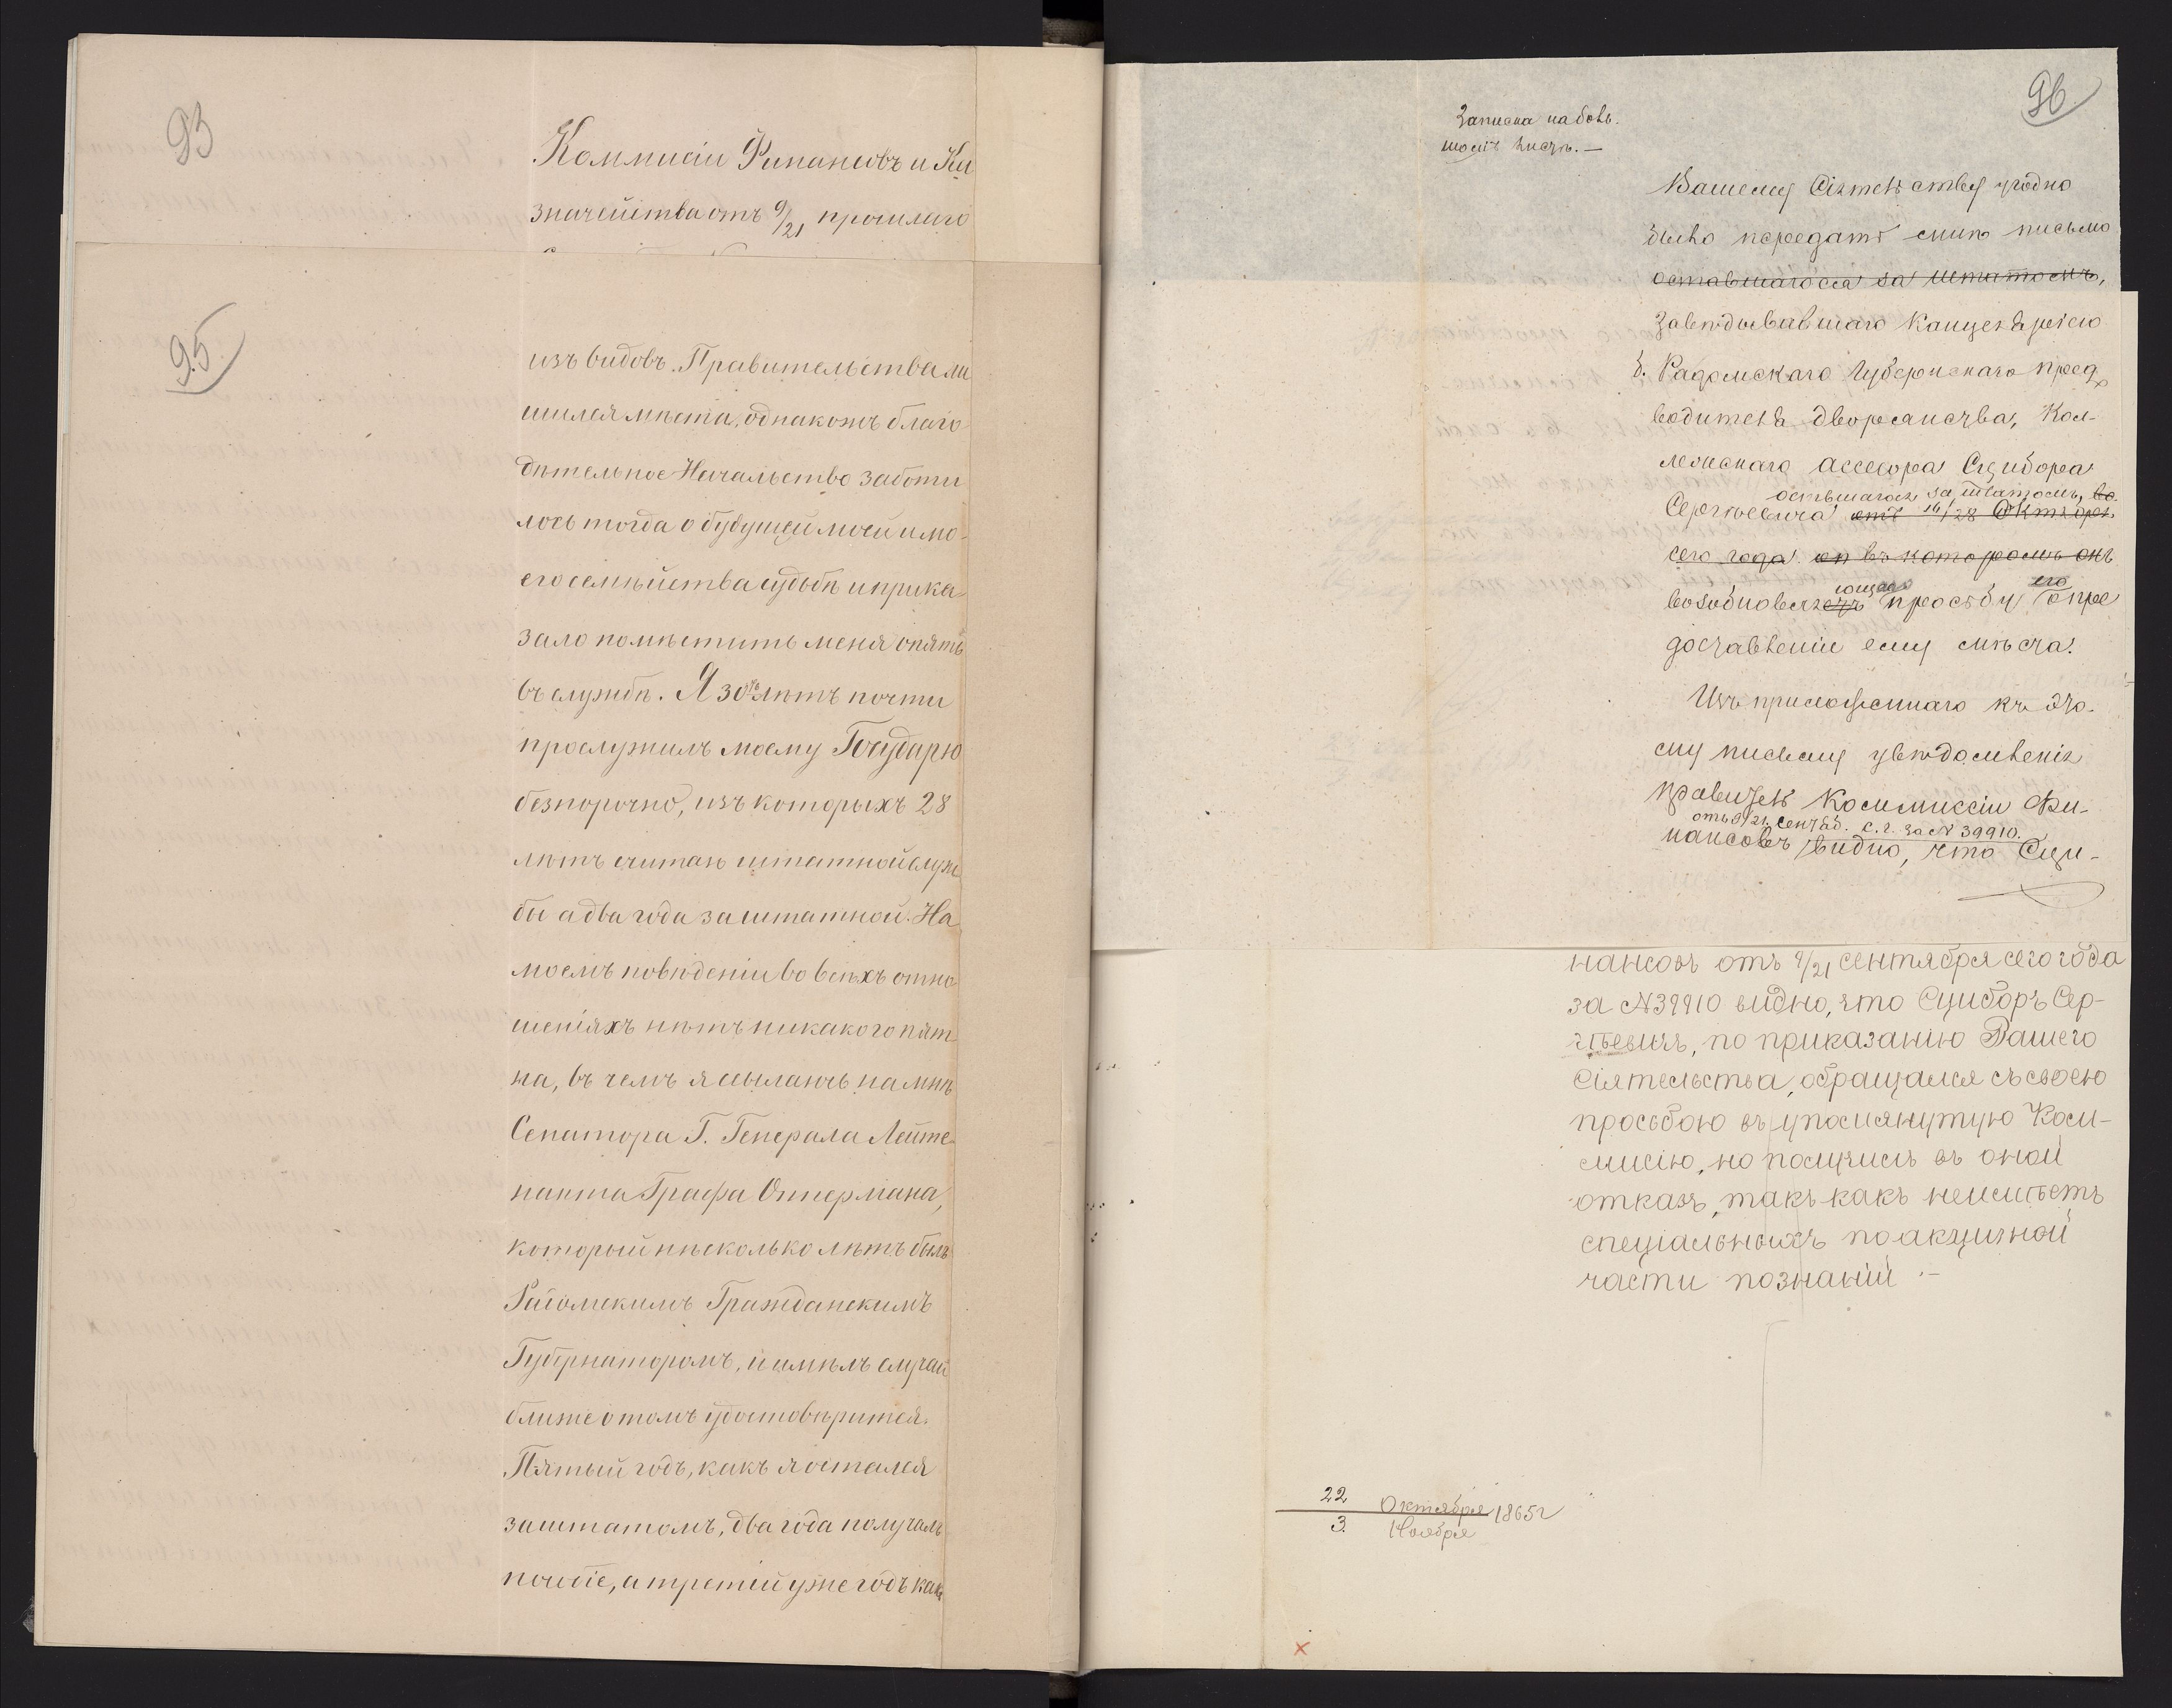 93
Коммисіи Финансовъ и Ка
значейства отъ 9/21 прошлаго
95
изъ видовъ Правительства ли
шился мѣста, однакожъ благо
дѣтельное Начальство заботи
лось тогда о будущей моей и мо-
его семѣйства судьбѣ и прика-
зало помѣстить меня опять
въ службѣ. Я 30ть лѣтъ почти
прослужилъ моему Государю
безпорочно, изъ которыхъ 28
лѣтъ считаю штатной служ
бы а два года заштатной. На
моемъ повѣденіи во всѣхъ отно
шеніяхъ нѣтъ никакого пят
на, въ чемъ я ссылаюсь на
Сенатора Г. Генерала Лейте-
нанта Графа Оппермана,
который нѣсколько лѣтъ былъ
Радомскимъ Гражданскимъ
Губернаторомъ, и имѣлъ случай
ближе о томъ удостовѣрится.
Пятый годъ, какъ я остался
заштатомъ, два года получалъ
пособіе, а третій уже годъ какъ
96
Записка на бѣль-
шомъ листѣ. —
Вашему Сіятельству угодно
было передать мнѣ письмо
оставшагося за штатомъ,
Завѣдывавшаго Канцеляріею
б. Радомскаго Губернскаго пред
водителя дворянства, Кол-
лежскаго ассесора Сцибора
оставшагося за штатомъ, во
Сергѣевича отъ 16/28 Октября
сего года въ которомъ онъ
ющаго его
возобновляетъ просьбу о пре
доставленіи ему мѣста.
Изъ приложеннаго къ это-
му письму увѣдомленія
Правител. Коммиссіи Фи-
отъ 9/21 Сентяб. с. г. за № 39910.
нансовъ видно, что Сци-
нансовъ отъ 9/21 Сентября сего года
за №39910 видно, что Сциборъ Сер-
гѣевичъ, по приказанію Вашего
Сіятельства, обращался съ своею
просьбою въ упомянутую Ком-
мисію, но получилъ въ оной
отказъ, такъ какъ неимѣетъ
спеціальныхъ по акцизной
части познаній.-
22 Октября 1865г
3 Ноября